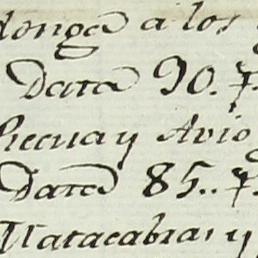 longa a los
Data 90. p
Recua y Avio
Data 85.. p
Matacabras y